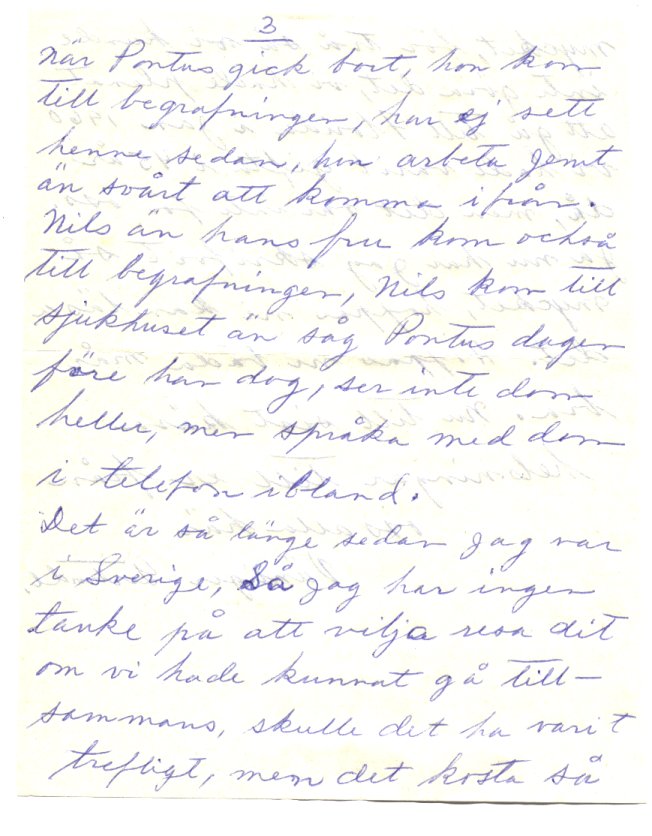 3
när Pontus gick bort, hon kom
till begrafningen, har ej sett
henne sedan, hon arbeta jemt
än svårt att komma ifrån.
Nils än hans fru kom också
till begrafningen, Nils kom till
sjukhuset än såg Pontus dagen
före han dog, ser inte dom
heller, men språka med dom
i telefon ibland.
Det är så länge sedan jag var
i Sverige, Så jag har ingen
tanke på att vilja resa dit
om vi hade kunnat gå till-
sammans, skulle det ha varit
trefligt, men det kosta så